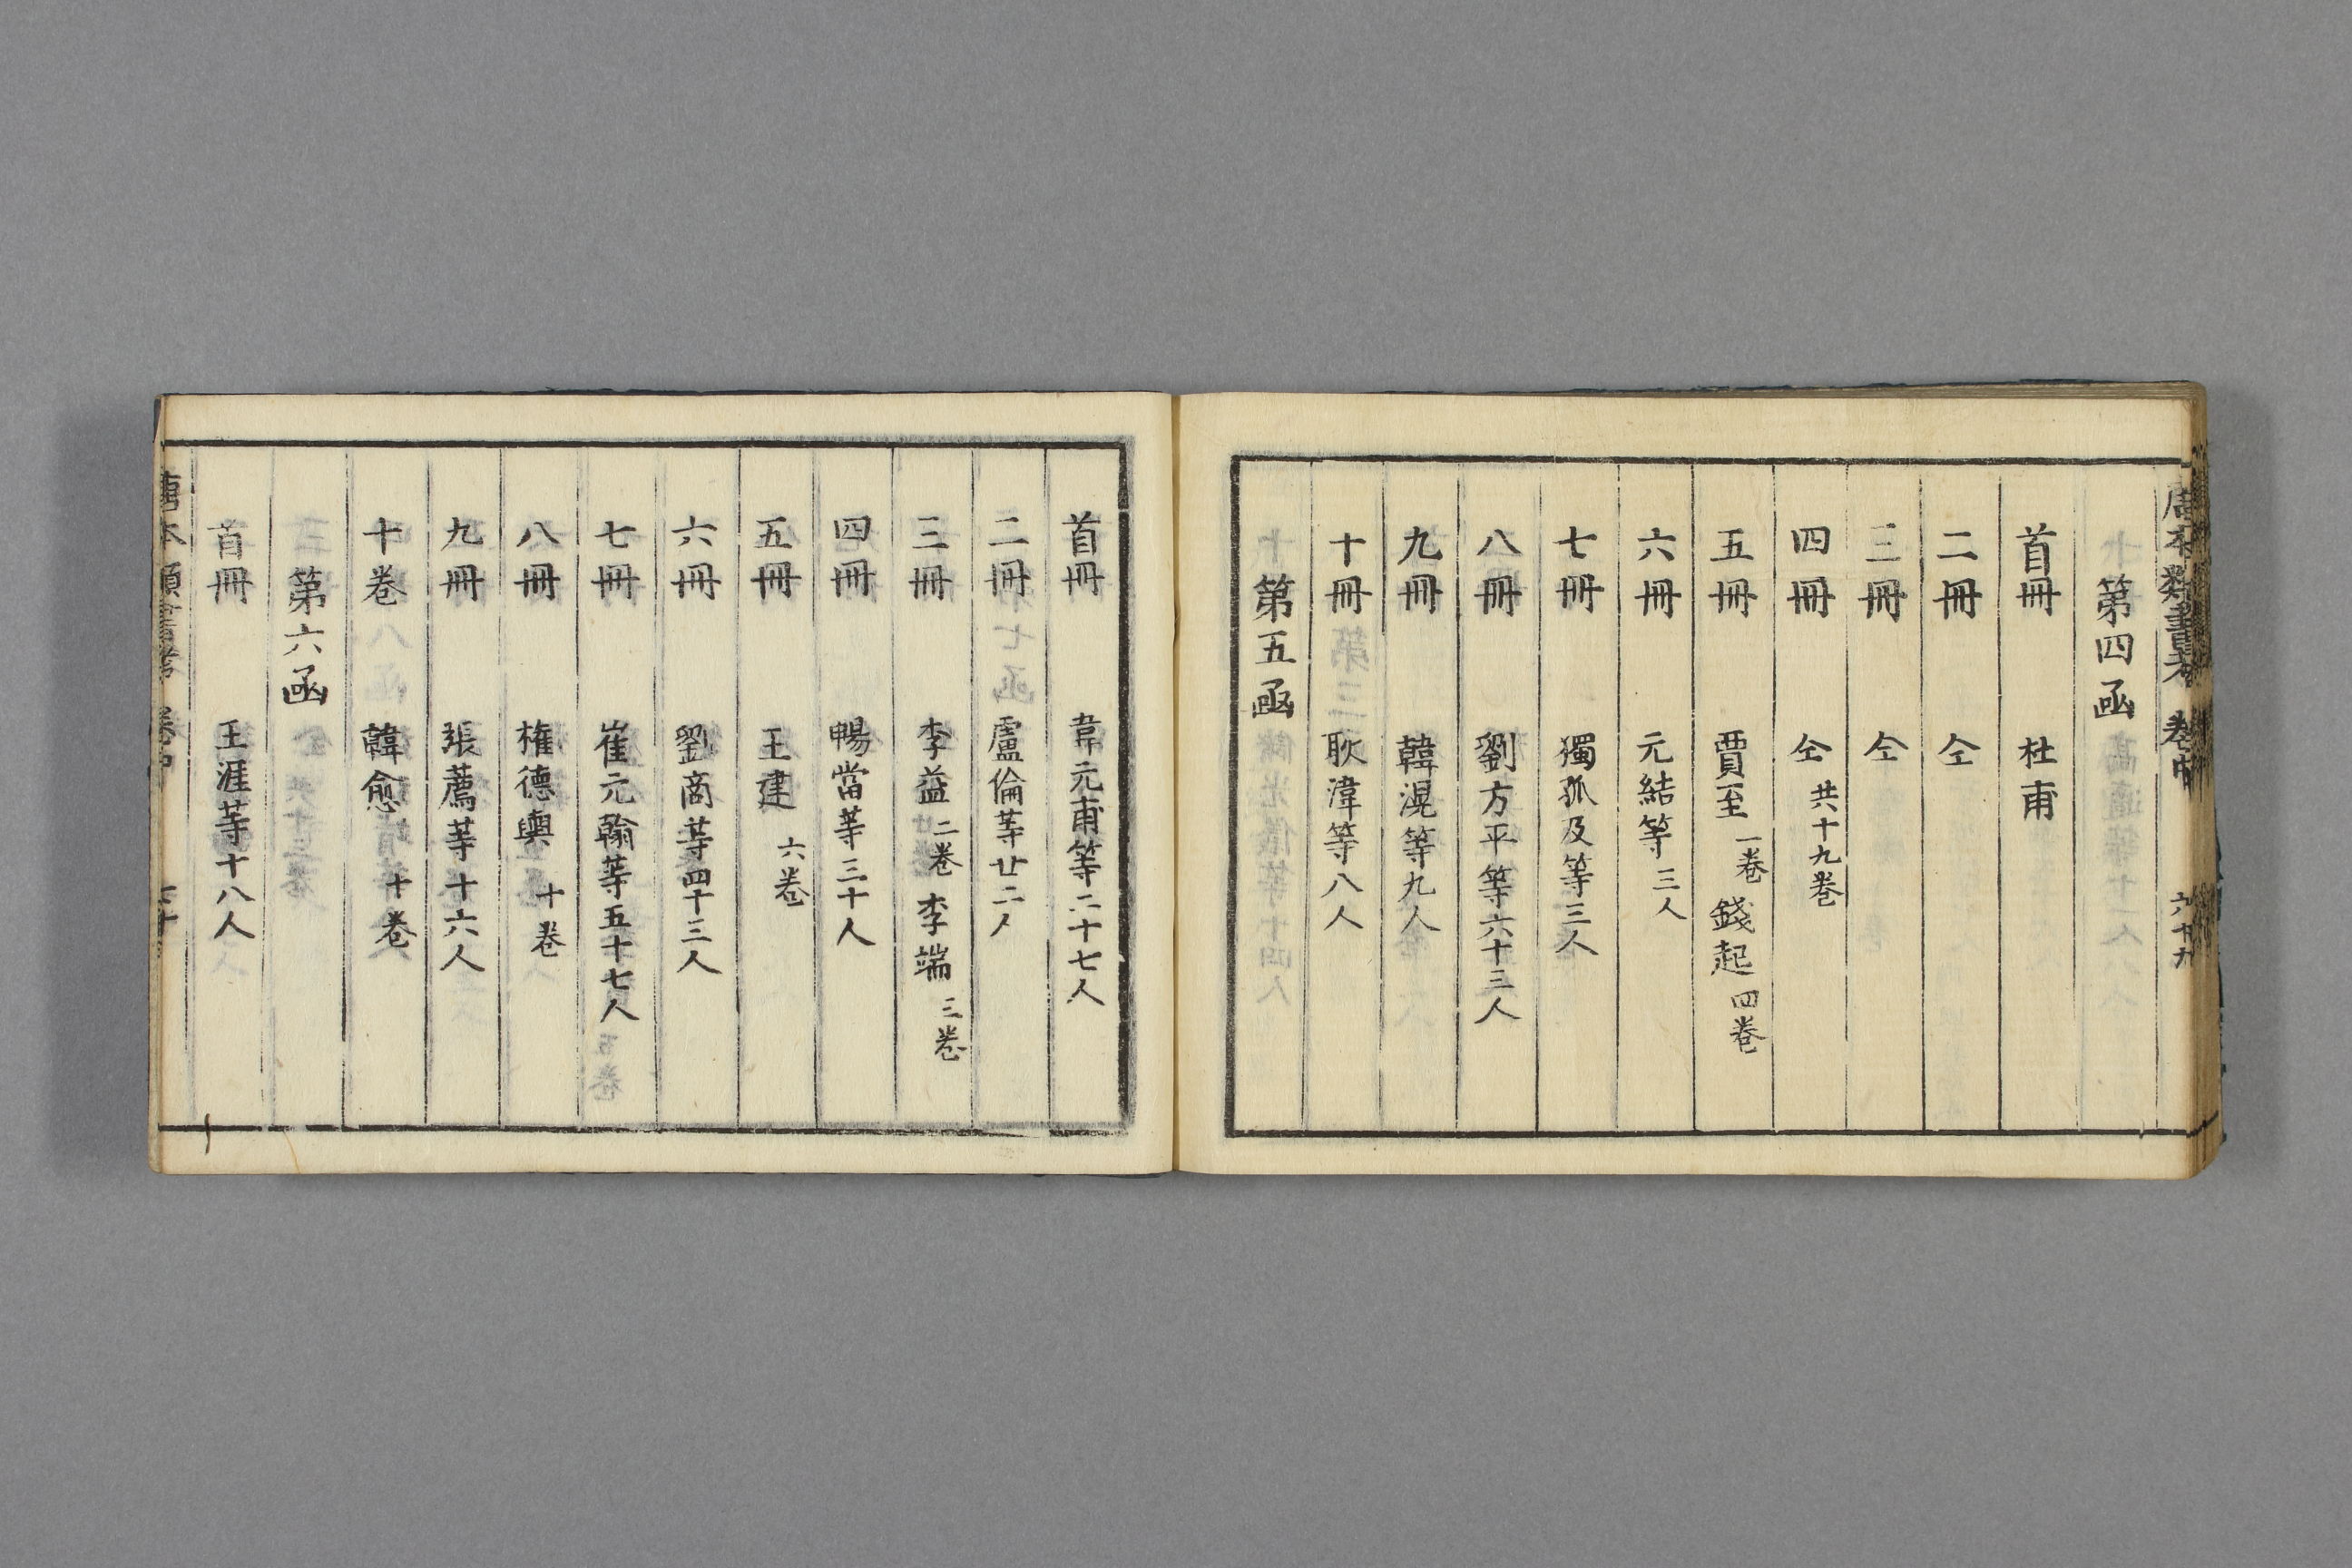 唐本類書考 卷中 六十九
第四凾
首冊 杜甫
二冊 仝
三冊 仝
四冊 仝 共十九卷
五冊 賈至 一卷 錢起 四卷
六冊 元結等三人
七冊 獨孤及等三人
八冊 劉方平等六十三人
九冊 韓滉等九人
十冊 耿湋等八人
第五凾
首冊 韋元甫等二十七人
二冊 盧倫等廿二人
三冊 李益 二卷 李端 三卷
四冊 暢當等三十人
五冊 王建 六卷
六冊 劉商等四十三人
七冊 崔元翰等五十七人
八冊 権德輿 十卷
九冊 張薦等十六人
十卷 韓愈 十卷
第六凾
首冊 王涯等十八人
唐本類書考 卷中 七十